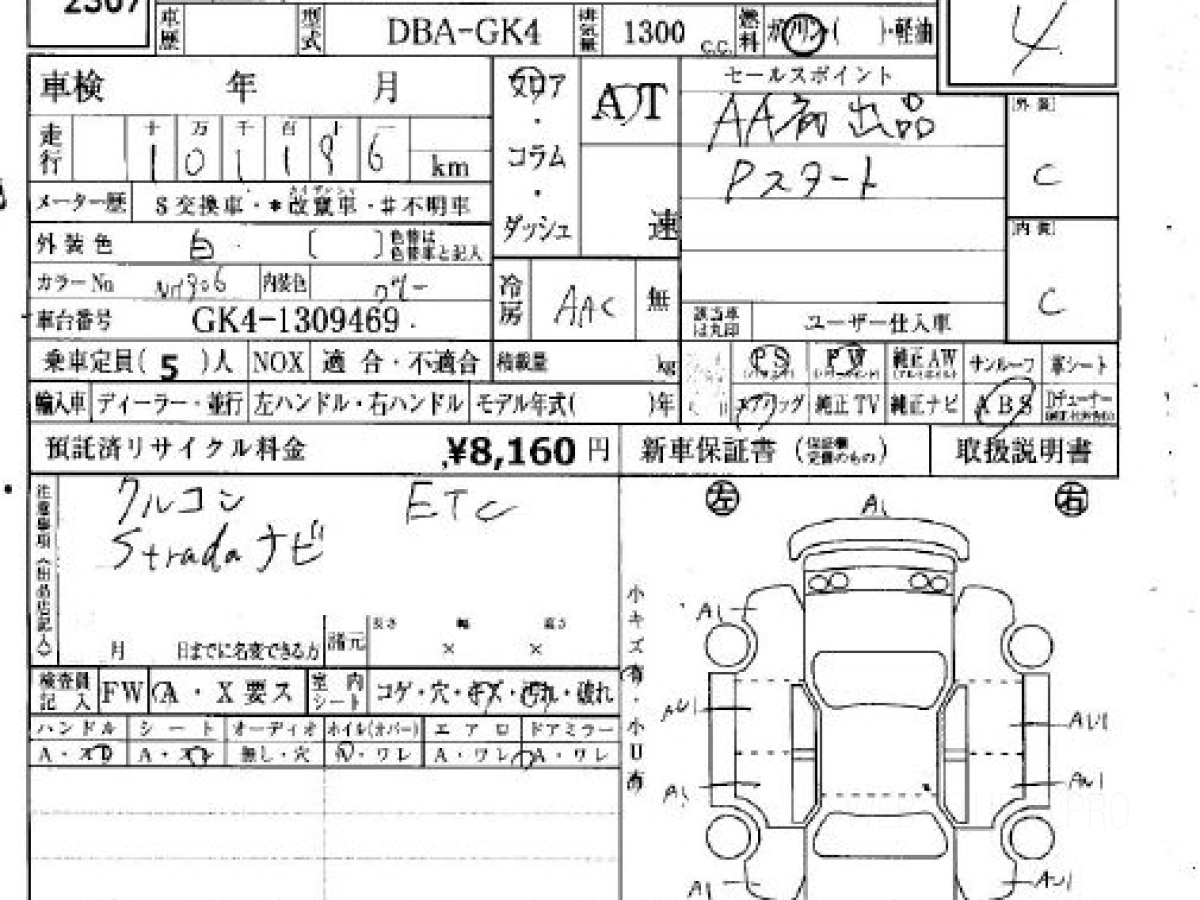 2307
車歴 型式 DBA-GK4 排気量 1300 C.C. 燃料 ガソリン( )・軽油
4
車検 年 月
フロア・コラム・ダッシュ
AT
速
セールスポイント
AA初出品
Pスタート
[外装]
C
[内装]
C
走行 十 万 千 百 十 一
101186 km
メーター歴 S交換車・*改竄車・#不明車
外装色 白 ( ) 色替は色替車と記入
カラーNo 内装色 グレー
冷房 AAC 無
車台番号 GK4-1309469
該当車は丸印 ユーザー仕入車
乗車定員( 5 )人 NOX 適合・不適合 積載量 kg
PS PW 純正AW サンルーフ 革シート
輸入車 ディーラー・並行 左ハンドル・右ハンドル モデル年式( )年
エアバッグ 純正TV 純正ナビ ABS Dチューナー
預託済リサイクル料金 ¥8,160 円 新車保証書 (保証欄完備のもの) 取扱説明書
注意事項(出品店記入)
クルコン ETC
Stradaナビ
月 日までに名変できる方 諸元 長さ × 幅 × 高さ
検査員記入 FW A・X要ス 室内シート コゲ・穴・キズ・汚れ・破れ
ハンドル シート オーディオ ホイル(オバー) エアロ ドアミラー
A・スレ A・スレ 無し・穴 A・ワレ A・ワレ A・ワレ
小キズ有・小U有
左 右
A1
A1
AU1 AU1
A1 AU1
A1 AU1
PRO